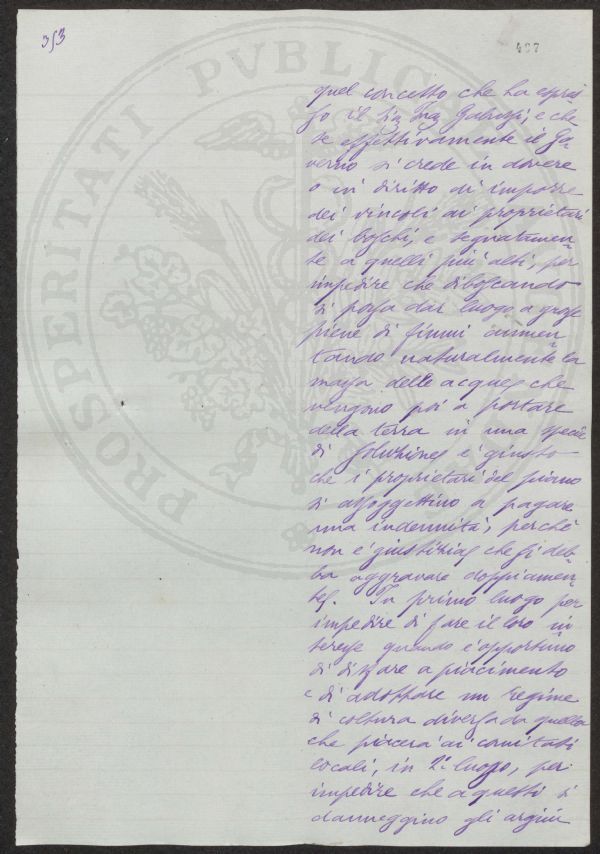 353
487
PROSPERITATI PVBLICAE
quel concetto che ha espres
so il Sig. Gabuzzi, e che
se effettivamente il Go
verno si crede in dovere
o in diritto di imporre
dei vincoli ai proprietari
dei boschi, e segnatamen
te a quelli più alti, per
impedire che diboscando
si possa dar luogo a grosse
piene di fiumi aumen
tando naturalmente la
massa delle acque che
vengono poi a portare
della terra in una specie
di soluzione è giusto
che i proprietari del piano
si assoggettino a pagare
una indennità, perché
non è giustizia che si deb
ba aggravare doppiamen
te. In primo luogo per
impedire di fare il loro in
teresse quando è opportuno
di disfare a piacimento
e di adottare un regime
di coltura diversa da quella
che piacerà ai comitati
locali, in 2° luogo, per
impedire che a questi si
danneggino gli argini